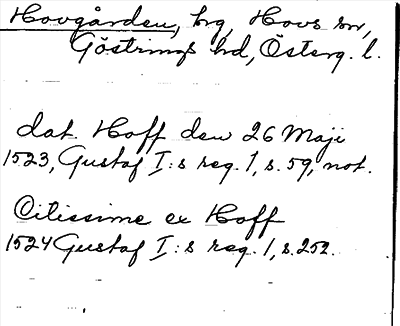 Hovgården, hrg, Hovs sn,
Göstrings hd, Österg. l.
dat. Hoff den 26 Maji
1523, Gustaf I:s reg. 1, s. 59, not.
Citissime ex Hoff
1524 Gustaf I:s reg. 1, s. 252.